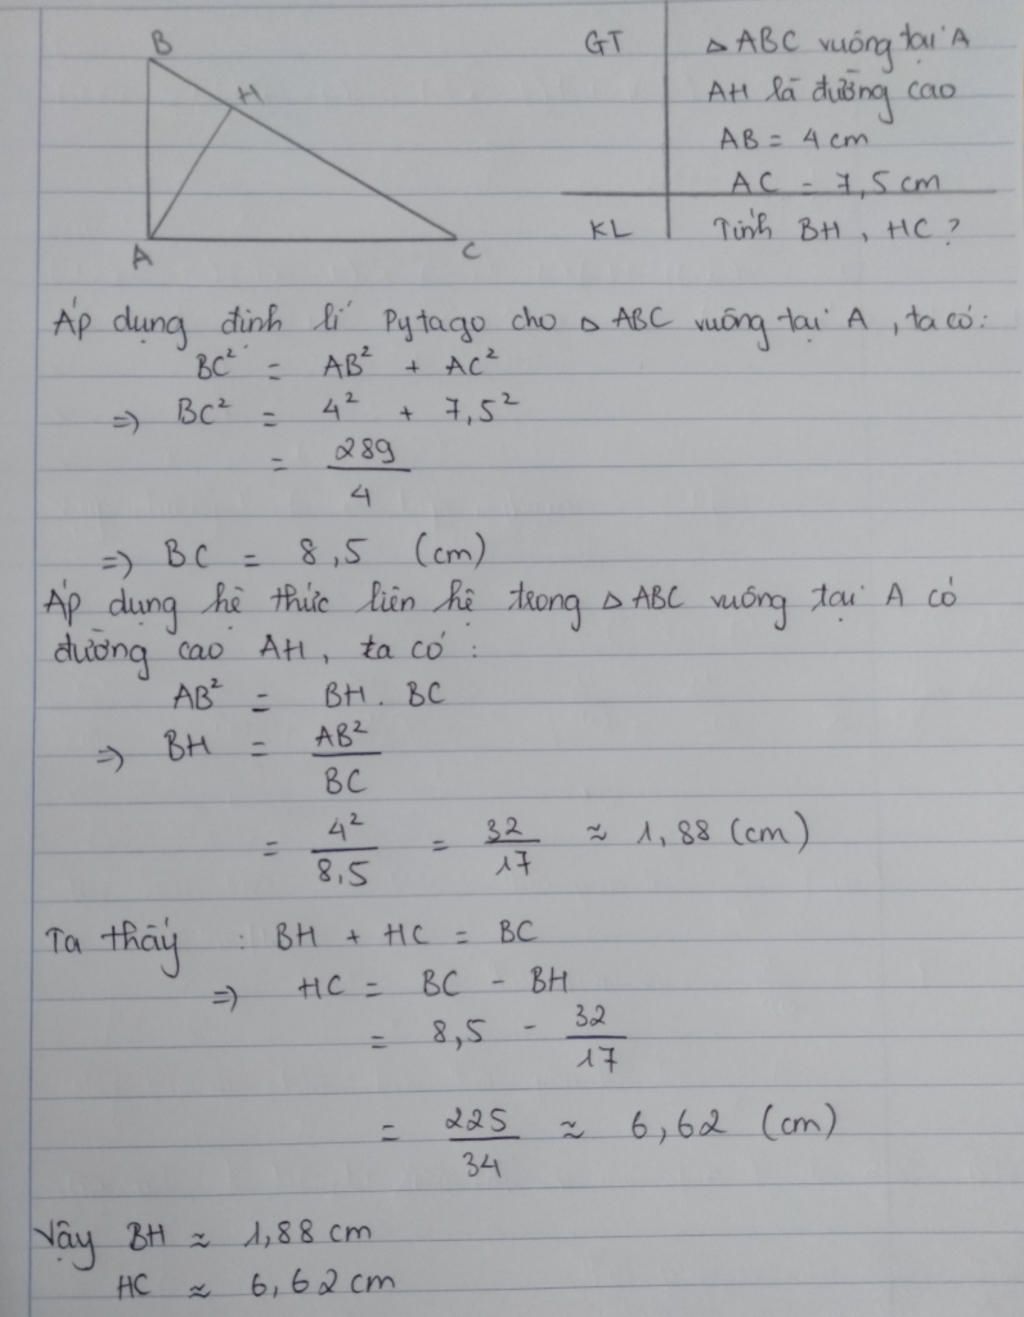 B
H
A
C
GT
Δ ABC vuông tại A
AH là đường cao
AB = 4 cm
AC = 7,5 cm
KL
Tính BH, HC?
Áp dụng định lí Pytago cho Δ ABC vuông tại A, ta có:
BC² = AB² + AC²
⇒ BC² = 4² + 7,5²
= 289/4
⇒ BC = 8,5 (cm)
Áp dụng hệ thức liên hệ trong Δ ABC vuông tại A có
đường cao AH, ta có:
AB² = BH . BC
⇒ BH = AB²/BC
= 4²/8,5 = 32/17 ≈ 1,88 (cm)
Ta thấy : BH + HC = BC
⇒ HC = BC - BH
= 8,5 - 32/17
= 225/34 ≈ 6,62 (cm)
Vậy BH ≈ 1,88 cm
HC ≈ 6,62 cm